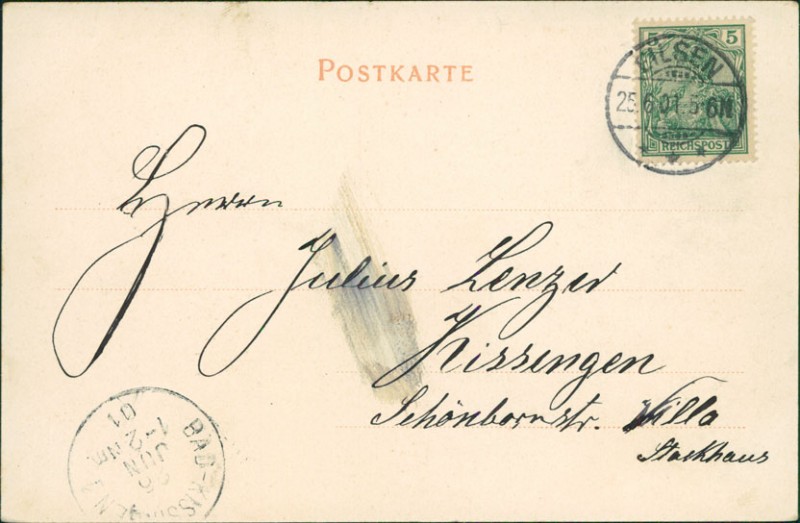 POSTKARTE
5 5
25.6.01. 5-6N
REICHSPOST
Herrn
Julius Lenzer
Kissingen
Schönbornstr. Villa
Stockhaus
BAD-KISSINGEN
26
JUN
1-2NM
01